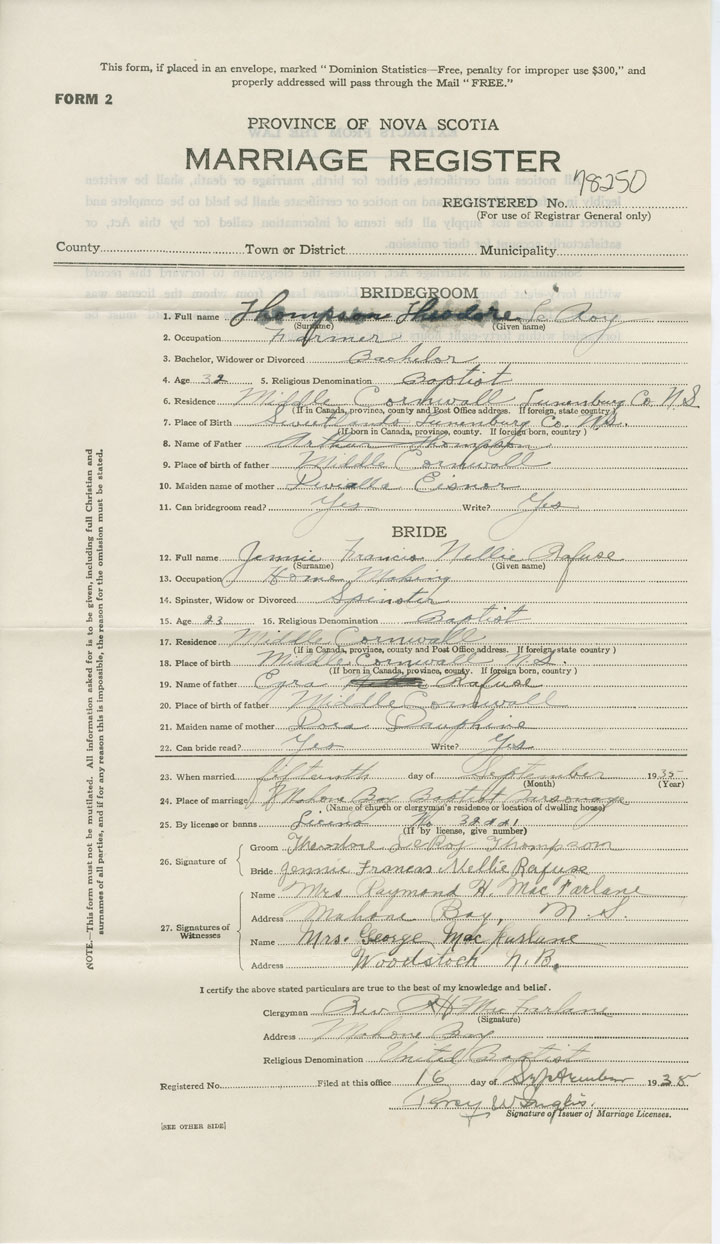 This form, if placed in an envelope, marked "Dominion Statistics—Free, penalty for improper use $300," and
properly addressed will pass through the Mail "FREE."
FORM 2
PROVINCE OF NOVA SCOTIA
MARRIAGE REGISTER
REGISTERED No. 78250
(For use of Registrar General only)
County Town or District Municipality
BRIDEGROOM
1. Full name Thompson Theodore Le Roy
(Surname) (Given name)
2. Occupation Farmer
3. Bachelor, Widower or Divorced Bachelor
4. Age 32 5. Religious Denomination Baptist
6. Residence Middle Cornwall Lunenburg Co. N.S.
(If in Canada, province, county and Post Office address. If foreign, state country)
7. Place of Birth Sweetlands Lunenburg Co. N.S.
(If born in Canada, province, county. If foreign born, country)
8. Name of Father Arthur Thompson
9. Place of birth of father Middle Cornwall
10. Maiden name of mother Eisnor
11. Can bridegroom read? Yes Write? Yes
BRIDE
12. Full name Jennie Francis Nellie Rafuse
(Surname) (Given name)
13. Occupation Home Making
14. Spinster, Widow or Divorced Spinster
15. Age 23 16. Religious Denomination Baptist
17. Residence Middle Cornwall
(If in Canada, province, county and Post Office address. If foreign, state country)
18. Place of birth Middle Cornwall N.S.
(If born in Canada, province, county. If foreign born, country)
19. Name of father Ezra Rafuse
20. Place of birth of father Middle Cornwall
21. Maiden name of mother Dora Dauphine
22. Can bride read? Yes Write? Yes
23. When married fifteenth day of September 1935
(Month) (Year)
24. Place of marriage Mahone Bay Baptist Parsonage
(Name of church or clergyman's residence or location of dwelling house)
25. By license or banns License No.
(If by license, give number)
26. Signature of
Groom Theodore LeRoy Thompson
Bride Jennie Francas Nellie Rafuse
27. Signatures of Witnesses
Name Mrs Raymond H. MacFarlane
Address Mahone Bay, N.S.
Name Mrs. George MacFarlane
Address Woodstock N.B.
I certify the above stated particulars are true to the best of my knowledge and belief.
Clergyman Rev. RH MacFarlane
(Signature)
Address Mahone Bay
Religious Denomination United Baptist
Registered No. Filed at this office 16 day of September 1935
Percy
Signature of Issuer of Marriage Licenses.
[SEE OTHER SIDE]
NOTE.—This form must not be mutilated. All information asked for is to be given, including full Christian and
surnames of all parties, and if for any reason this is impossible, the reason for the omission must be stated.